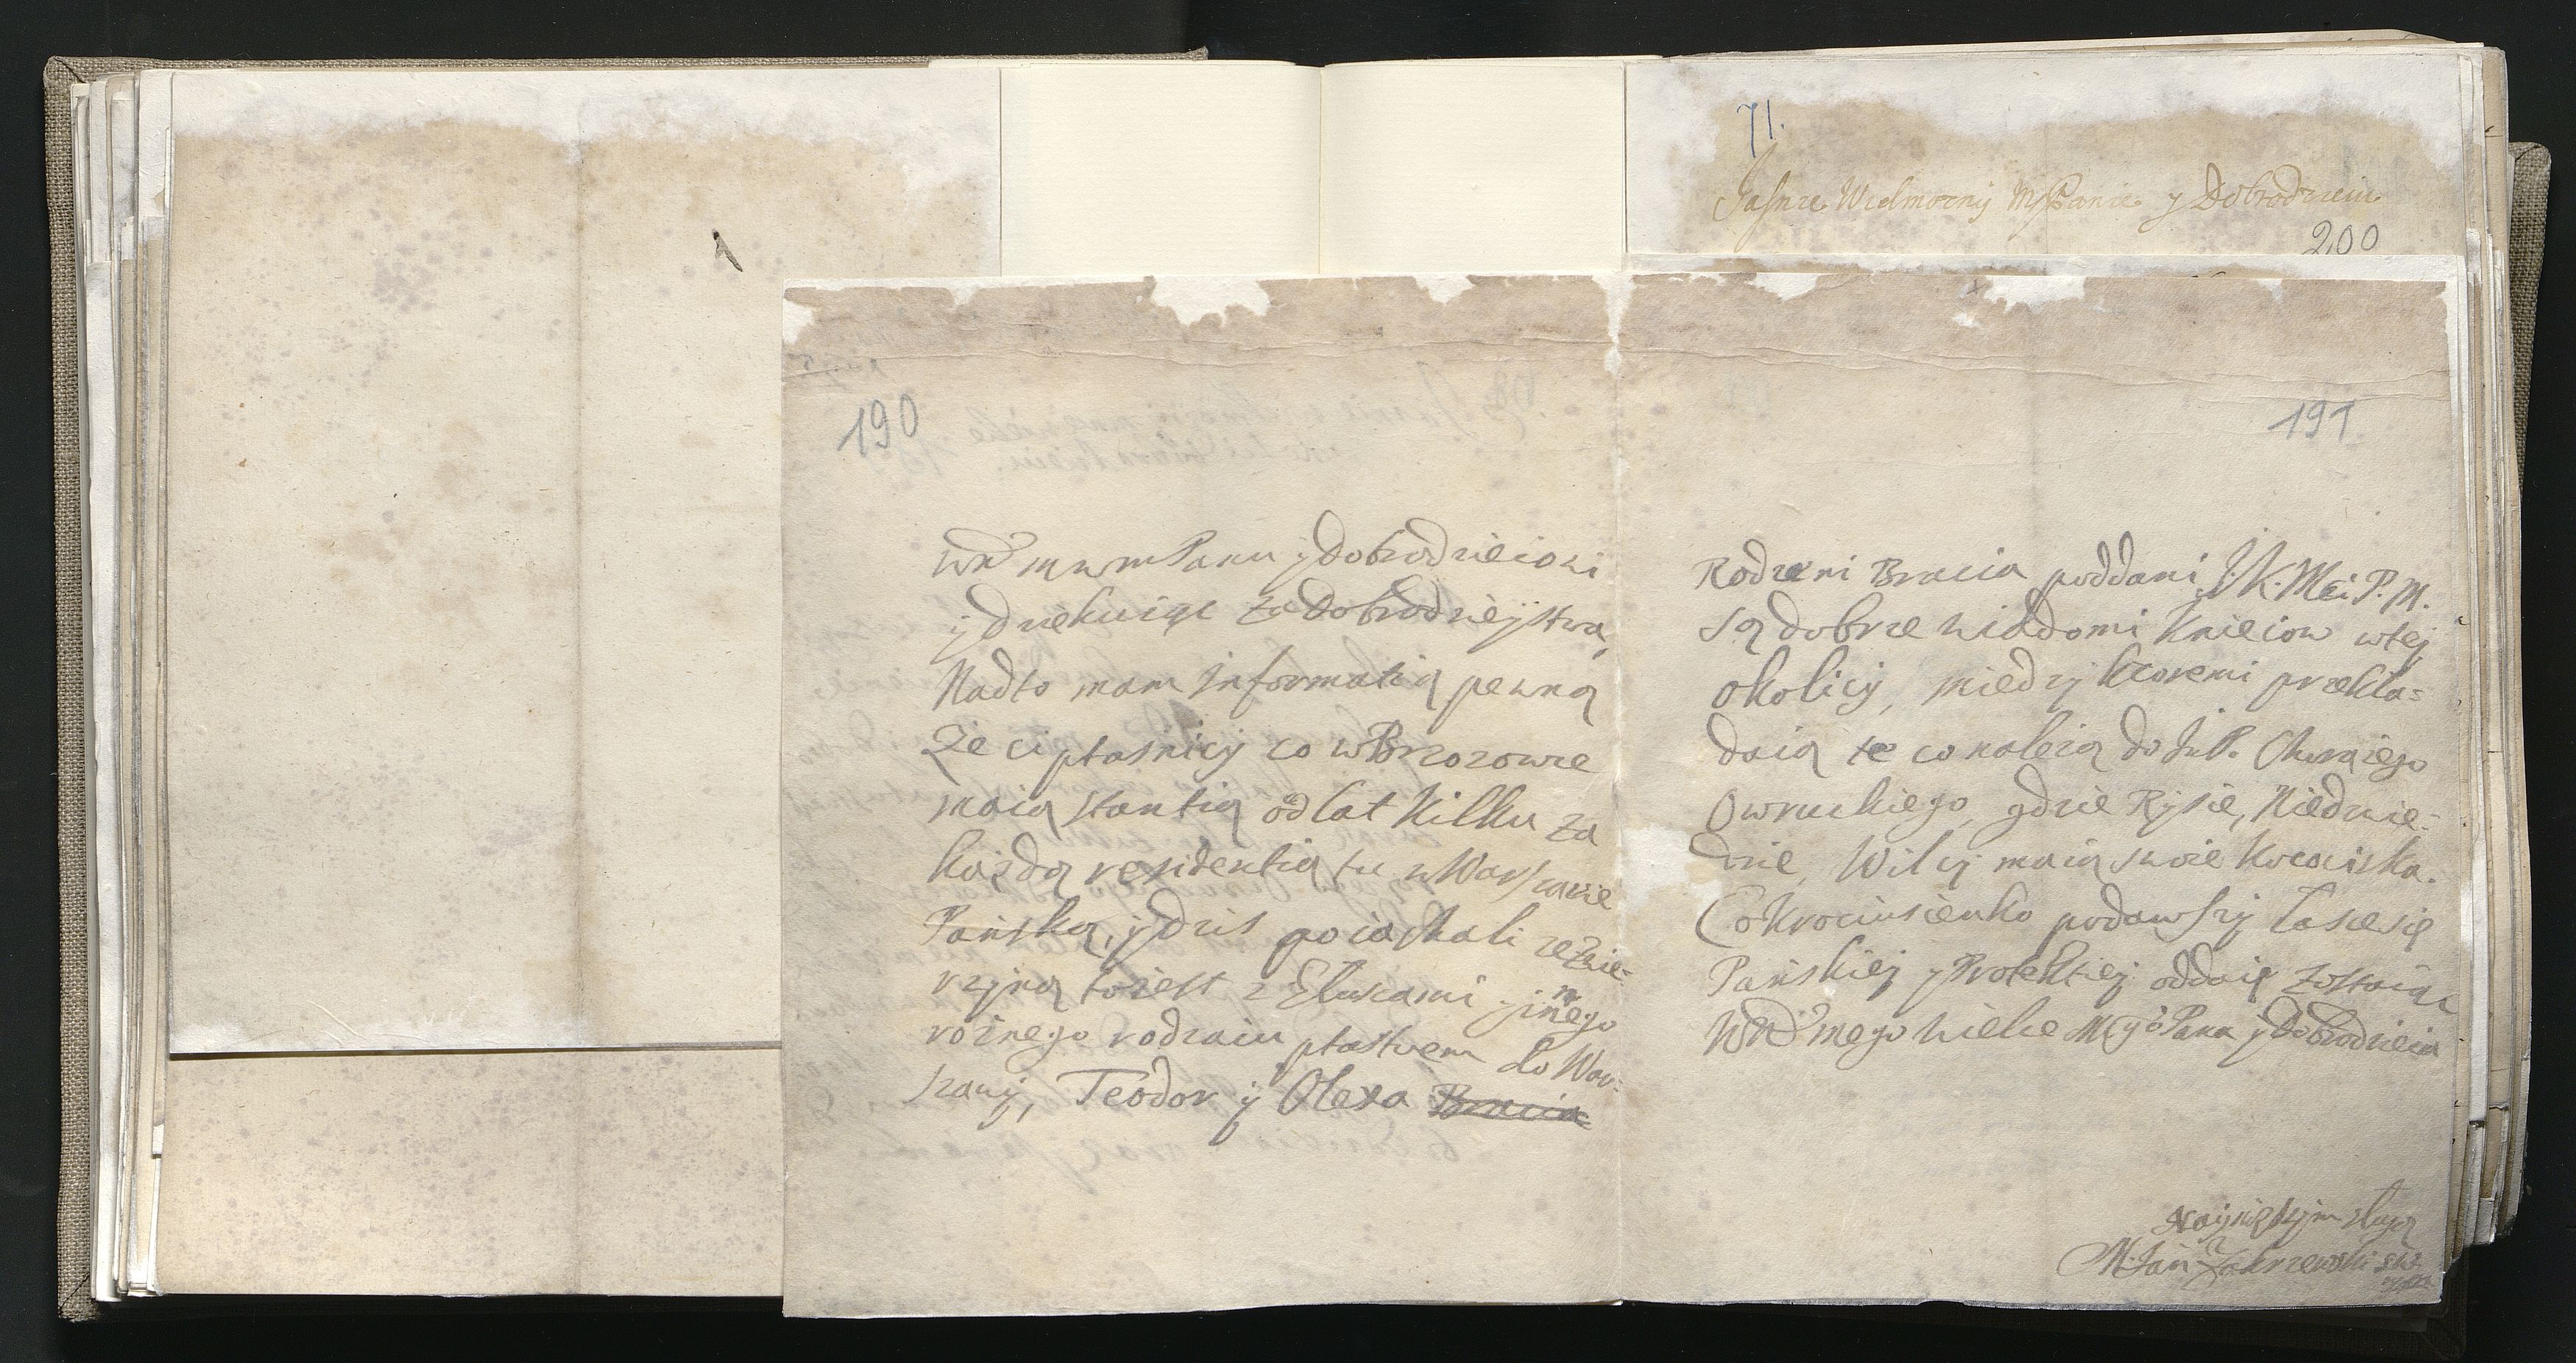 71.
Jasnie Wielmozny MPanie y Dobrodzieiu
200
190
mwm Panu y Dobrodzieiowi
y dziekuiąc za Dobrodzieystwa,
Nadto mam informatią pewną
Ze ci ptasnicy co w Brzozowie
maią stantią od lat kilku za
każdą residentią tu w Warszawie
Pańską, y dzis poiachali ze Zwie-
rzyną to iest z y innego
rożnego rodzaiu ptastwem do War-
szawy, Teodor y Olexa Bracia
191
Rodzeni Bracia poddani J. K. Mci P. M.
są dobrze wiadomi Kniei‌ow w tej
okolicy, miedzy ktoremi przekła-
daią te co należą do Chorążego
Owruckiego, gdzie Rysie, Niedzwie-
dzie, Wilcy maią swoie Koczowiska.
Co krociusienko podawszy łasce się
Pańskiey y Protektiey oddaię zostaiąc
mego wielce Mgo Pana y Dobrodzieia
Nayniższym sługą
M. Jan Zakrzewski